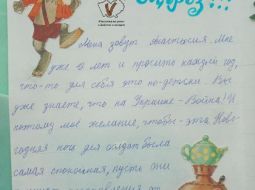 Мороз!!!
Меня зовут Анастасия. Мне
уже 8 лет и просить каждый год,
что-то для себя это по-детски. Вы
уже знаете, что на Украине - Война! И
поэтому моё желание, чтобы эта Ново-
годняя ночь для солдат была
самая спокойная, пусть они